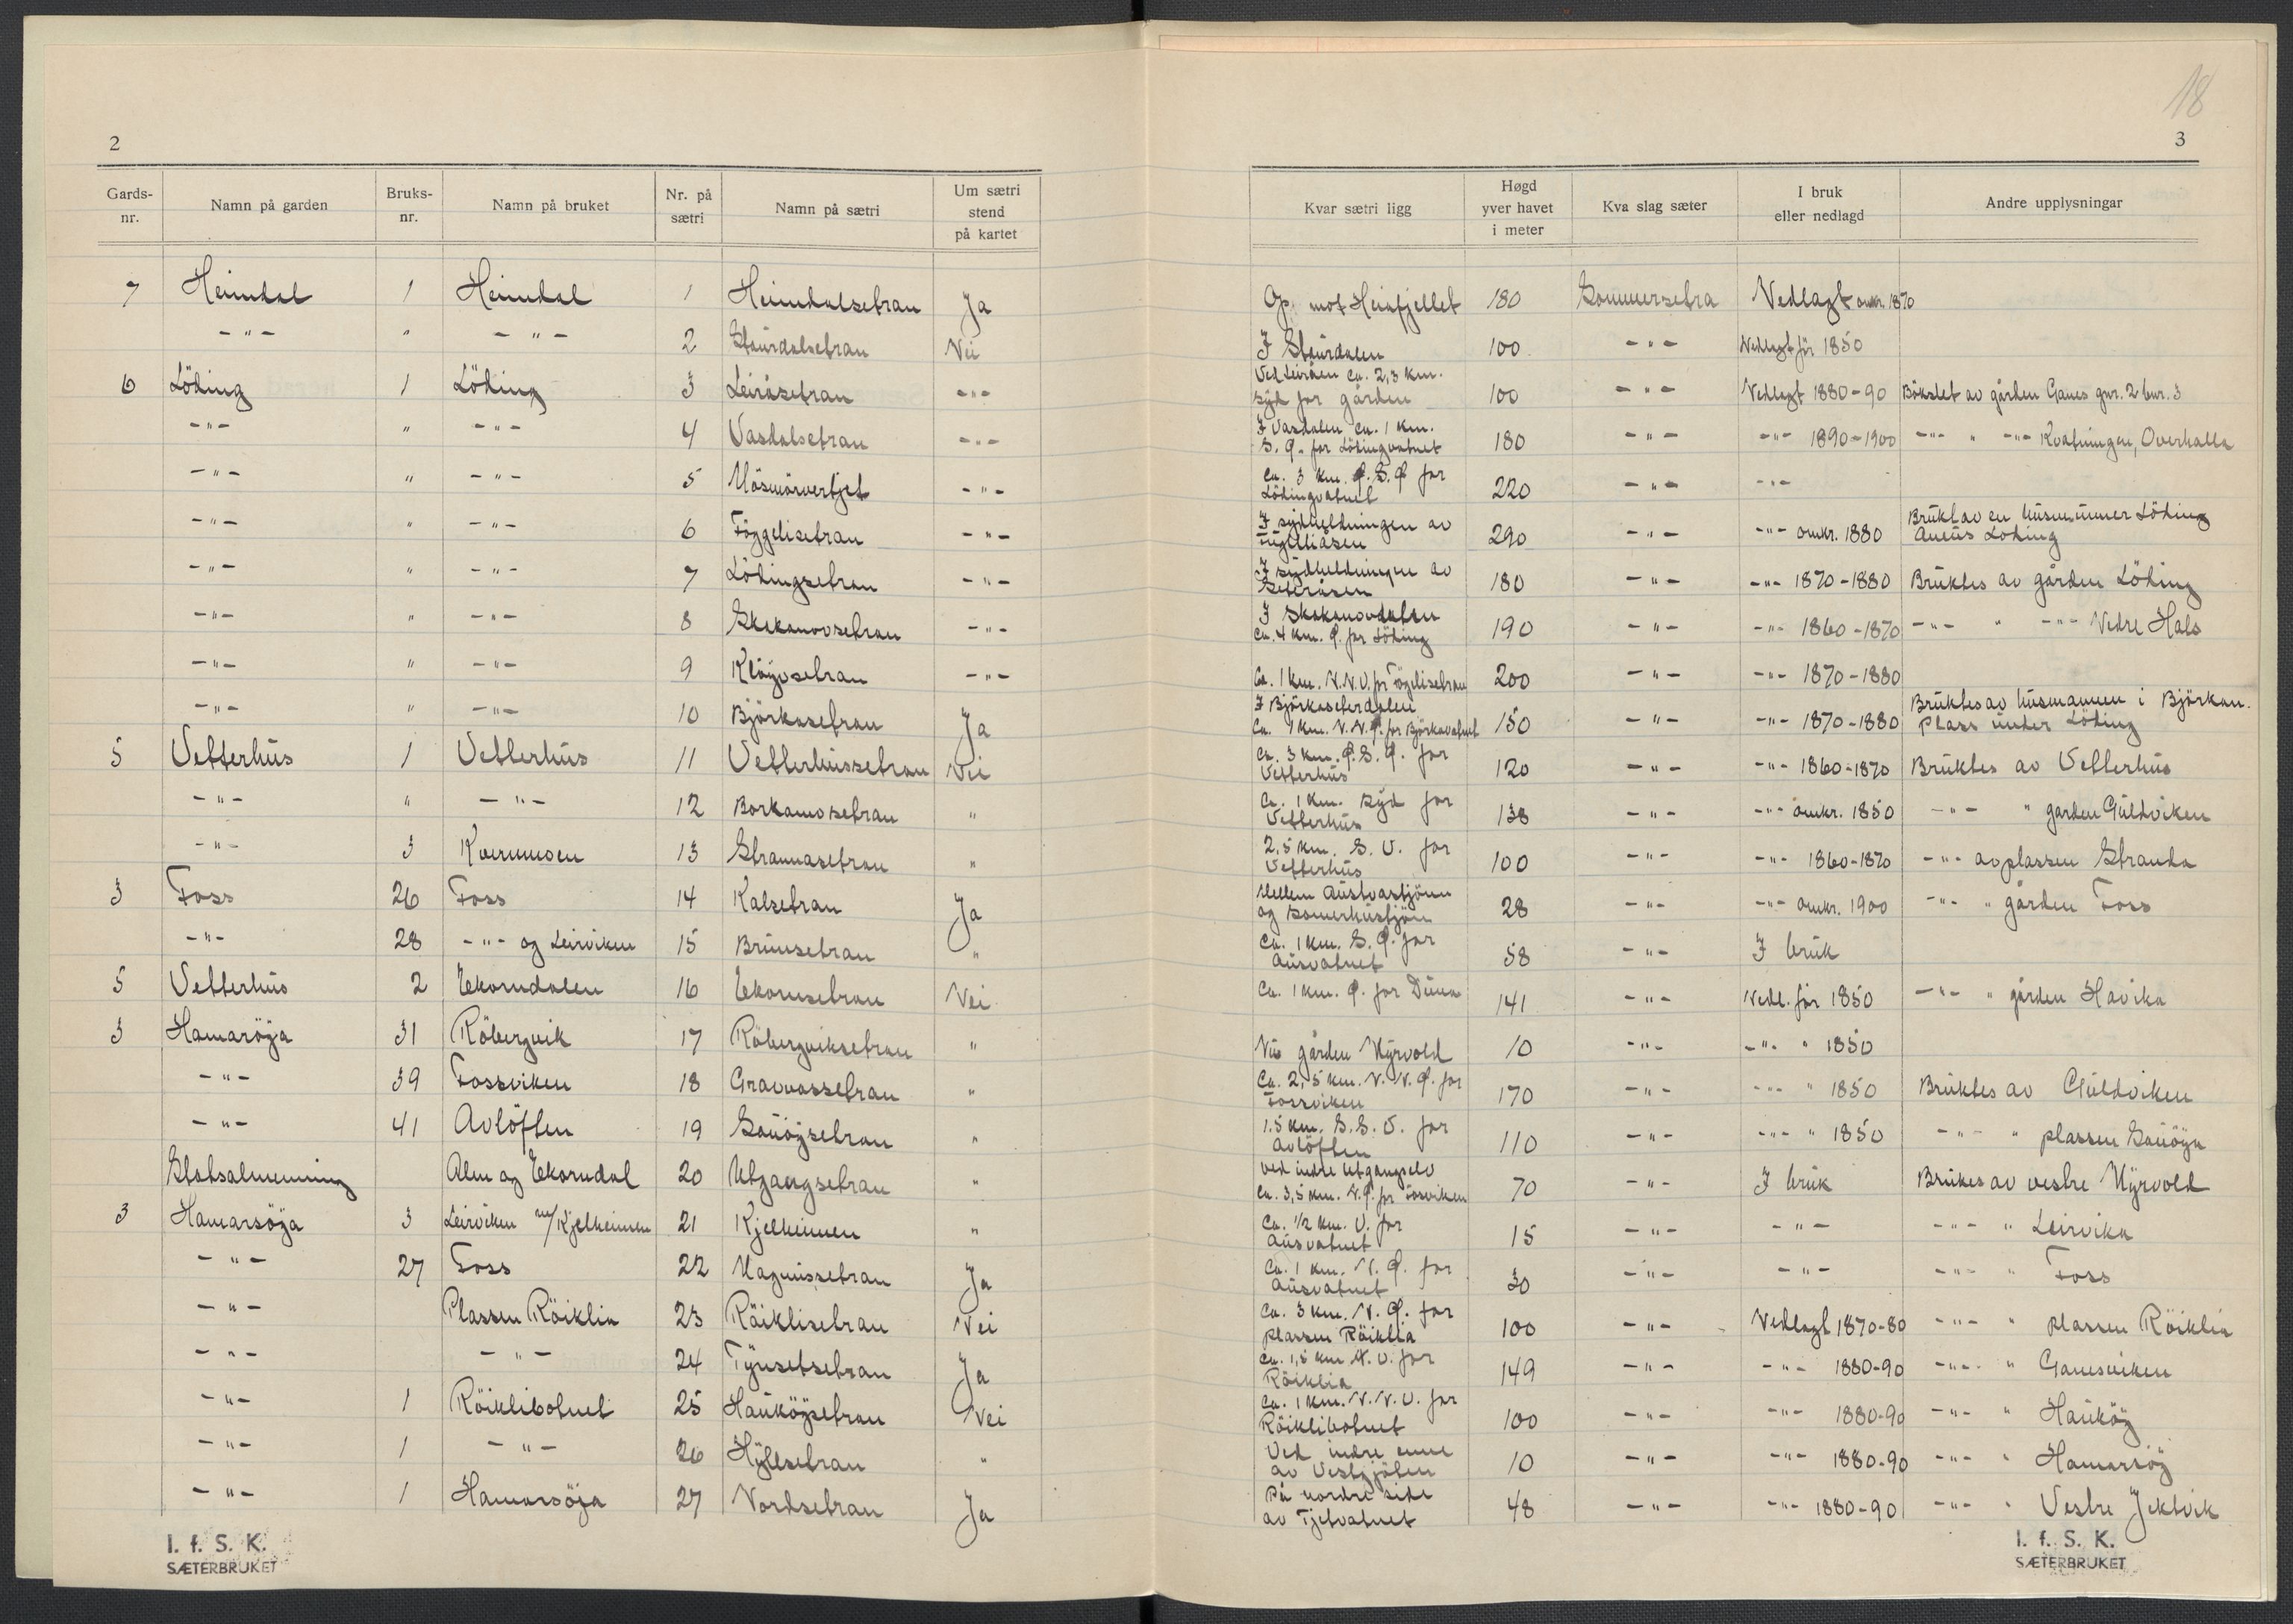 18
2
3
Gards-nr. Namn på garden Bruks-nr. Namn på bruket Nr. på sætri Namn på sætri Um sætri stend på kartet Kvar sætri ligg Høgd yver havet i meter Kva slag sæter I bruk eller nedlagd Andre upplysningar
7 Heimdal 1 Heimdal 1 Heimdalsetran Ja Op mot Heiafjellet 180 Sommersetra Nedlagt omkr. 1870
-"- " -"- 2 Staurdalsetran Nei I Staurdalen 100 -"- Nedlagt før 1850
6 Löding 1 Löding 3 Leiråsetran -"- Ved Leiråen ca. 2,3 km. syd for gården 100 -"- Nedlagt 1880-90 av gården Ganes gnr. 2 bnr. 3
-"- " -"- 4 Vasdalsetran -"- I Vasdalen ca. 1 km. S. Ø. for Lödingvatnet 180 -"- -"- 1890-1900 -"- " -"- Kvatningen, Overhalla
-"- " -"- 5 -"- Ca. 3 km. Ø.S.Ø for Lödingvatnet 220 -"- -"-
-"- " -"- 6 Föggelisetran -"- I sydheldningen av 290 -"- -"- omkr. 1880 Brukt av en under Löding Löding
-"- " -"- 7 Lödingsetran -"- I sydheldningen av Seteråsen 180 -"- -"- 1870-1880 Bruktes av gården Löding
-"- " -"- 8 Skakamovsetran -"- I Skakamovdalen ca. 4 km. Ø. for Löding 190 -"- -"- 1860-1870 -"- " -"- Nedre Hals
-"- " -"- 9 Klöyvsetran -"- Ca. 1 km. N.N.V. for Föggelisetran 200 -"- -"- 1870-1880
-"- " -"- 10 Björkasetran Ja I Björkaseterdalen Ca. 1 km. N.N.Ø. for Björkavatnet 150 -"- -"- 1870-1880 Bruktes av husmannen i Björkan. Plass under Löding
5 Vetterhus 1 Vetterhus 11 Vetterhussetran Nei Ca. 3 km. Ø.S.Ø. for Vetterhus 120 -"- -"- 1860-1870 Bruktes av Vetterhus
-"- " -"- 12 Borkamosetran " Ca. 1 km. syd for Vetterhus 138 -"- -"- omkr. 1850 -"- " garden Guldviken
-"- 3 Kvernmoen 13 Strannasetran " 2,5 km. S. V. for Vetterhus 100 -"- -"- 1860-1870 -"- av plassen Stranda
3 Foss 26 Foss 14 Kalsetran Ja Mellem Austvastjönn og 28 -"- -"- omkr. 1900 -"- " gården Foss
-"- 28 -"- og Leirviken 15 Brunsetran " Ca. 1 km. S. Ø. for Ausvatnet 58 -"- I bruk
5 Vetterhus 2 Ekorndalen 16 Ekornsetran Nei Ca. 1 km. Ø. for Duna 141 -"- Nedl. før 1850 -"- " gården Havika
3 Hamaröya 31 Råbergvik 17 Råbergviksetran " Nu gården Myrvold 10 -"- -"- " 1850
-"- 39 Fossviken 18 Gravvassetran " Ca. 2,5 km. N. N. Ø. for Fossviken 170 -"- -"- " 1850 Bruktes av Guldviken
-"- 41 Avlöften 19 Sauöysetran " 1.5 km. S. S. V. for Avlöften 110 -"- -"- " 1850 -"- " plassen Sauöya
Statsalmenning Alm og Ekorndal 20 Utgangsetran " Ved indre Utgangselv Ca. 3,5 km. N.Ø. for Fosviken 70 -"- I bruk Brukes av vestre Myrvold
3 Hamarsöya 3 Leirviken m/Kjelheimen 21 Kjelheimen " Ca. 1/2 km. V. for Ausvatnet 15 -"- -"- -"- " Leirvika
-"- 27 Foss 22 Magnussetran Ja Ca. 1 km. N. Ø. for Ausvatnet 30 -"- -"- -"- " Foss
-"- Plassen Röiklia 23 Röiklisetran Nei Ca. 3 km. N. Ø. for plassen Röiklia 100 -"- Nedlagt 1870-80 -"- " plassen Röiklia
-"- -"- 24 Tynsetsetran Ja Ca. 1,5 km N. V. for Röiklia 149 -"- -"- 1880-90 -"- " Ganesviken
-"- 1 Röiklibotnet 25 Hauköysetran Nei Ca. 1 km. N. N. V. for Röiklibotnet 100 -"- -"- 1880-90 -"- " Hauköy
-"- 1 -"- 26 Hyllsetran " Ved indre enne av Vestsjöten 10 -"- -"- 1880-90 -"- " Hamarsöy
-"- 1 Hamarsöya 27 Nordsetran Ja På nordre side av Tjetvatnet 48 -"- -"- 1880-90 -"- " Vestre Jektvik
I. f. S. K.
SÆTERBRUKET
I. f. S. K.
SÆTERBRUKET